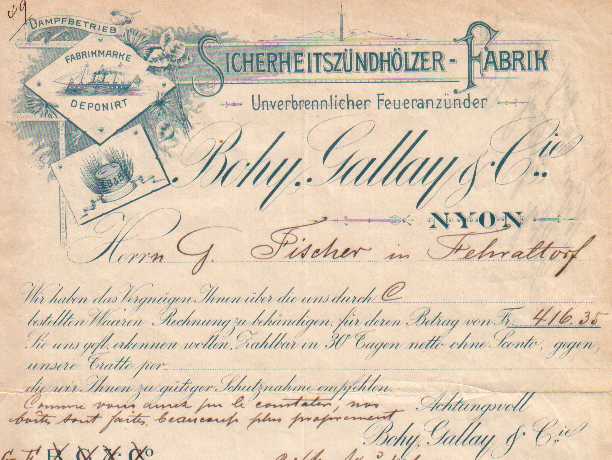 49
DAMPFBETRIEB
FABRIKMARKE
DEPONIRT
SICHERHEITSZÜNDHÖLZER-FABRIK
Unverbrennlicher Feueranzünder
Bohy, Gallay & Cie.
NYON
Herrn G. Fischer in Fehraltorf
Wir haben das Vergnügen Ihnen über die uns durch C
bestellten Waaren Rechnung zu behändigen, für deren Betrag von Fr. 416.35
Sie uns gefl. erkennen wollen. Zahlbar in 30 Tagen netto ohne Sconto, gegen
unsere Tratte per
die wir Ihnen zu gütiger Schutznahme empfehlen.
Comme vous aurez pu le constater, nos
boîtes sont faites beaucoup plus proprement
Achtungsvoll
Bohy, Gallay & Cie